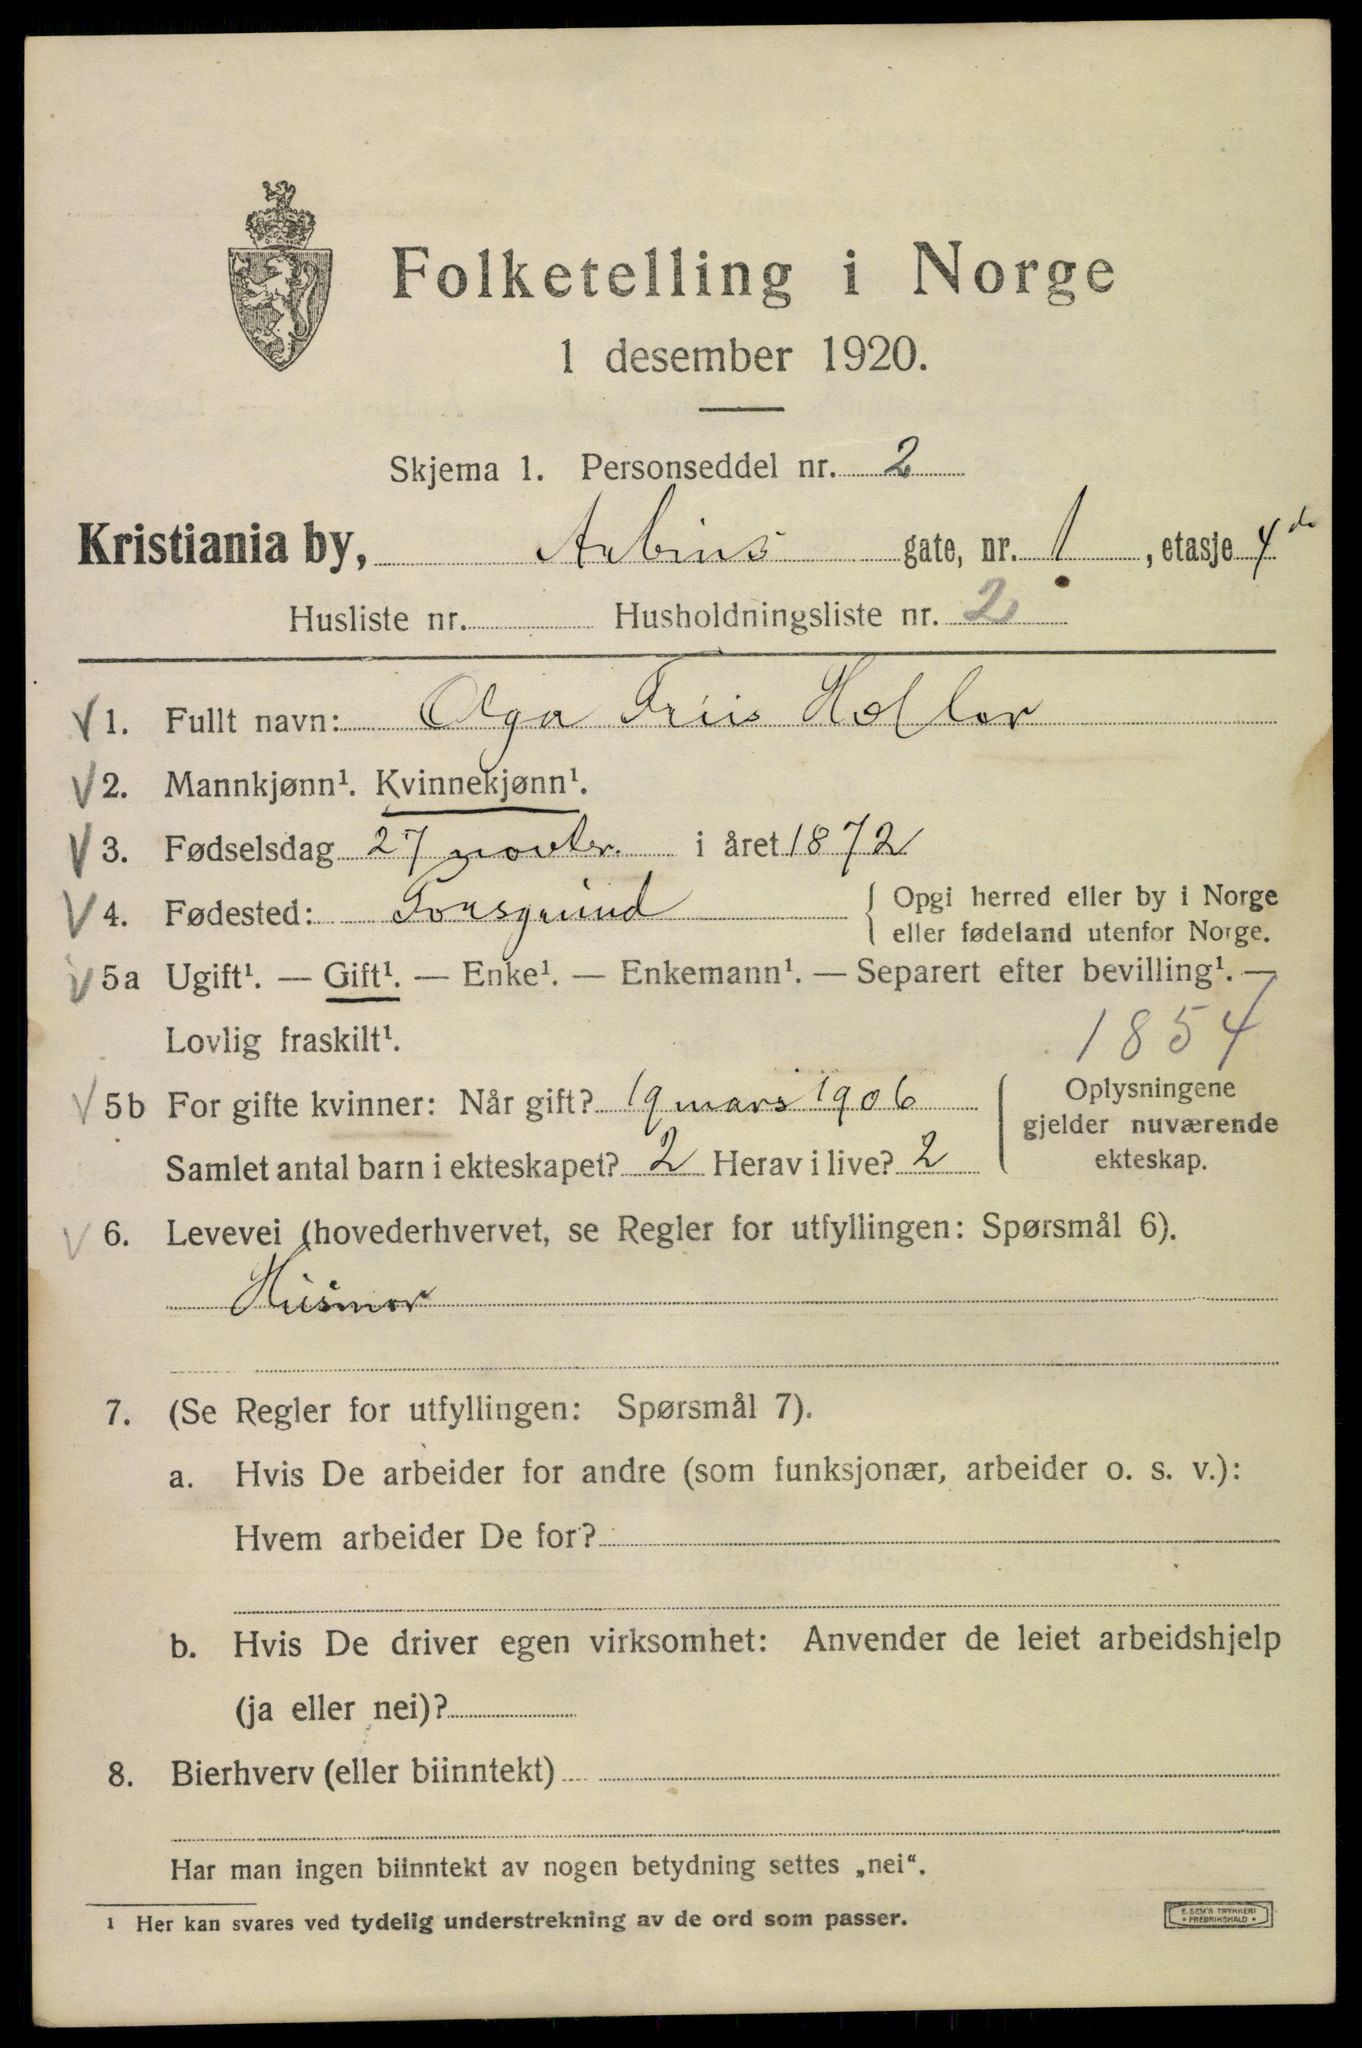 Folketelling i Norge
1 desember 1920.
Skjema 1. Personseddel nr. 2
Kristiania by, Arbins gate, nr. 1, etasje 4de
Husliste nr. Husholdningsliste nr. 2
1. Fullt navn: Olga Friis
2. Mannkjønn¹. Kvinnekjønn¹.
3. Fødselsdag 27 novbr. i året 1872
4. Fødested: Porsgrund { Opgi herred eller by i Norge
eller fødeland utenfor Norge.
5a Ugift¹. — Gift¹. — Enke¹. — Enkemann¹. — Separert efter bevilling¹. —
Lovlig fraskilt¹. 1854
5b For gifte kvinner: Når gift? 19 mars 1906
Samlet antal barn i ekteskapet? 2 Herav i live? 2
Oplysningene
gjelder nuværende
ekteskap.
6. Levevei (hovederhvervet, se Regler for utfyllingen: Spørsmål 6).
Husmor
7. (Se Regler for utfyllingen: Spørsmål 7).
a. Hvis De arbeider for andre (som funksjonær, arbeider o. s. v.):
Hvem arbeider De for?
b. Hvis De driver egen virksomhet: Anvender de leiet arbeidshjelp
(ja eller nei)?
8. Bierhverv (eller biinntekt)
Har man ingen biinntekt av nogen betydning settes „nei“.
¹ Her kan svares ved tydelig understrekning av de ord som passer.
E. SEM'S TRYKKERI
FREDRIKSHALD